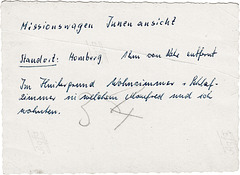 Missionswagen Innenansicht
Standort: Homberg 1km von Rhs entfernt
Im Hintergrund Wohnzimmer + Schlaf-
zimmer in welchem Manfred und ich
wohnten.